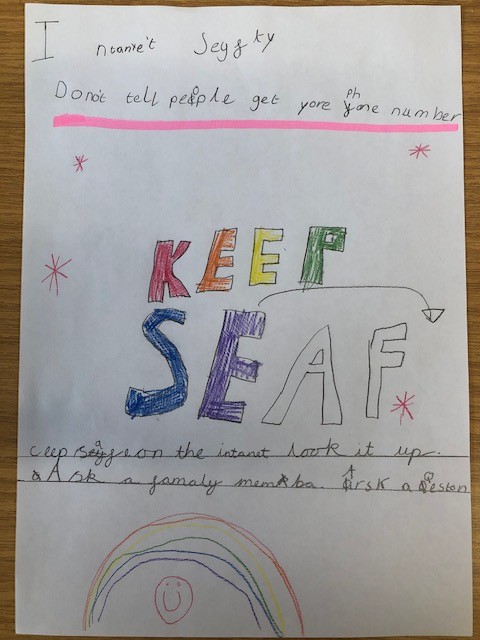 I ntanet Seyfty
Donot tell people get yore phone number
KEEP
SEAF
ceep sayfe on the intanet look it up.
Ask a famaly memba. Arsk a Qeston